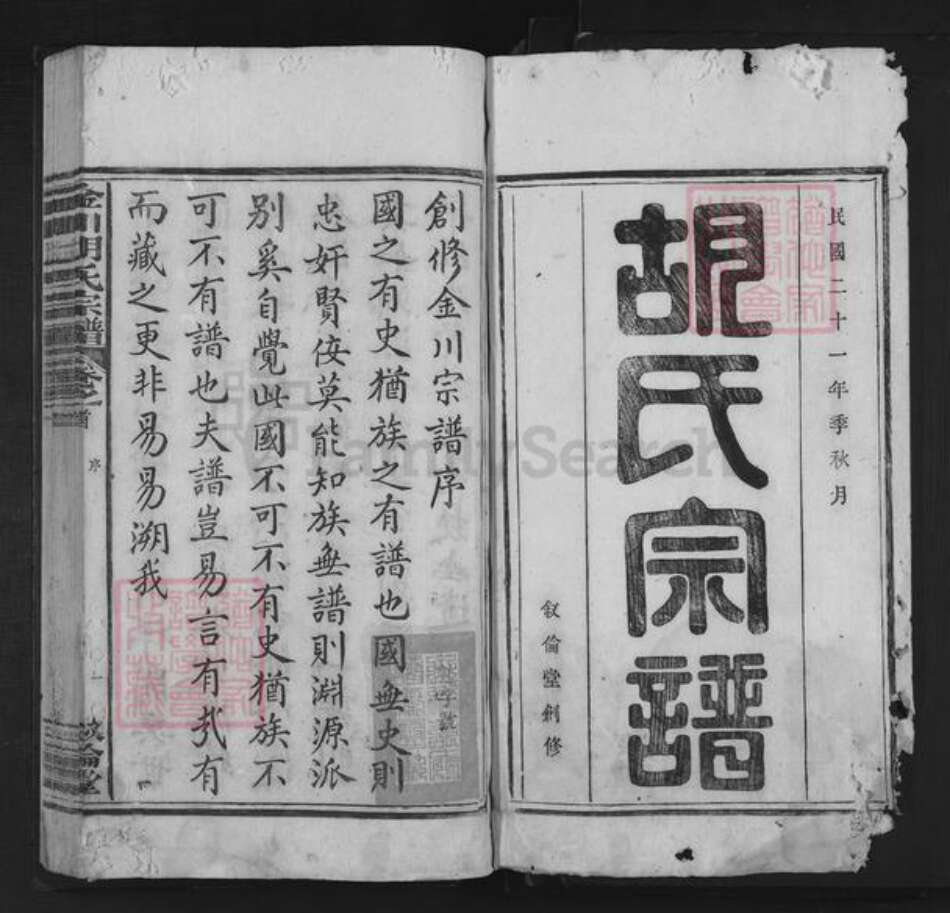 民國二十一年季秋月
胡氏宗譜
敘倫堂創修
創修金川宗譜序
國之有史猶族之有譜也國無史則
忠奸賢佞莫能知族無譜則淵源派
別奚自覺此國不可不有史猶族不
可不有譜也夫譜豈易言有哉有
而藏之更非易易溯我
金川胡氏宗譜
卷之首
序
一
敘倫堂
字號
FamilySearch